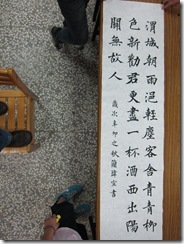 渭城朝雨浥輕塵客舍青青柳
色新勸君更盡一杯酒西出陽
關無故人
歲次辛卯之秋 書